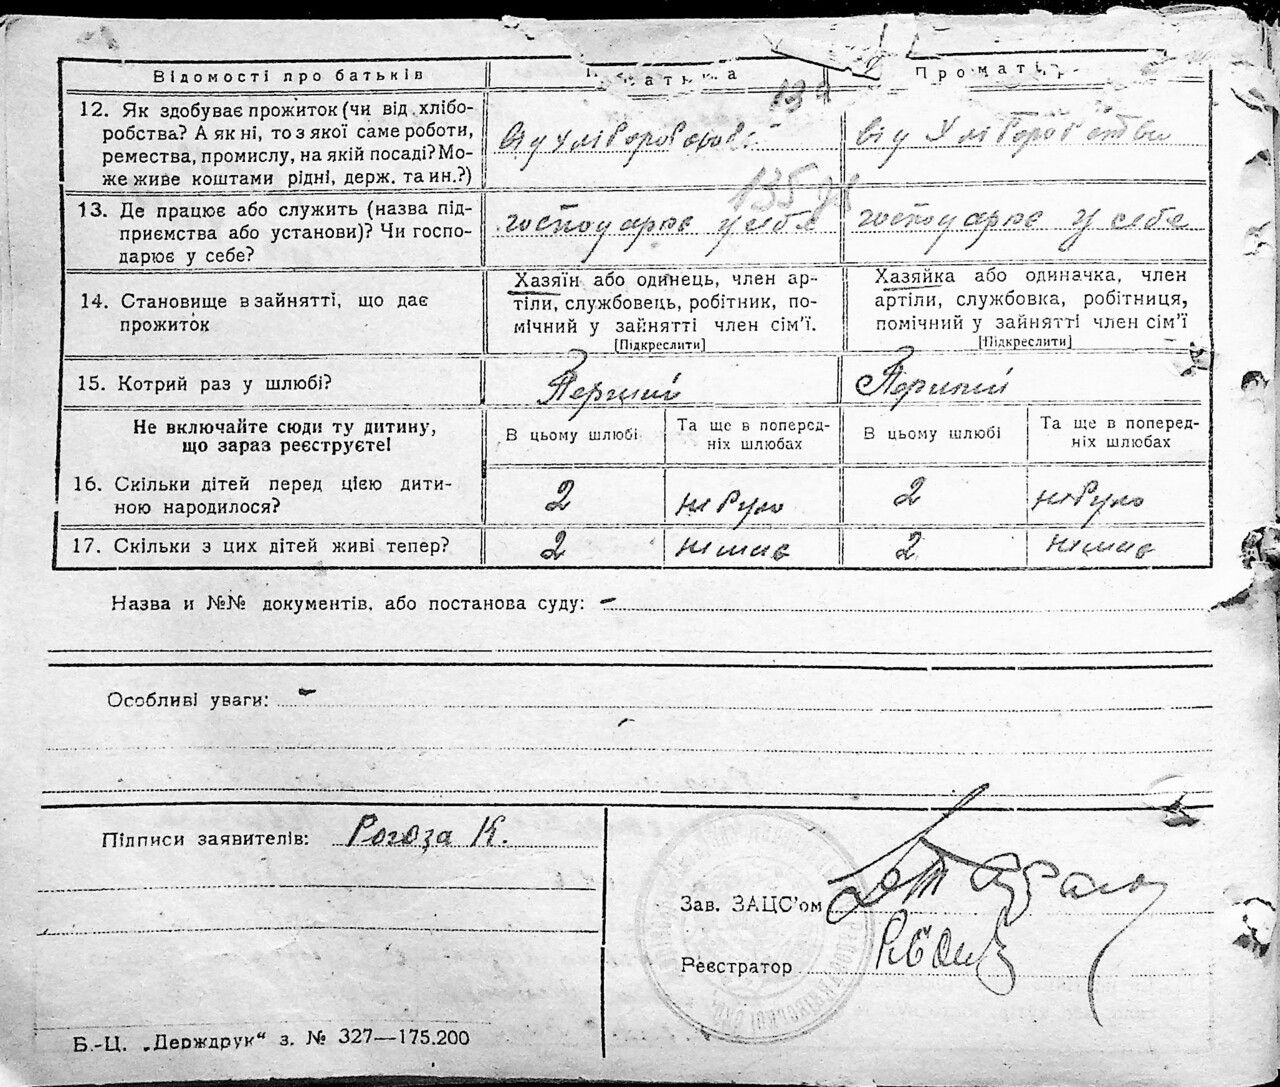 Відомості про батьків
Про матір
12. Як здобуває прожиток (чи від хлібо-
робства? А як ні, то з якої саме роботи,
ремества, промислу, на якій посаді? Мо-
же живе коштами рідні, держ. та ин.?)
від Хліборобства
13. Де працює або служить (назва під-
приємства або установи)? Чи госпо-
дарює у себе?
господарює у себе
господарює у себе
14. Становище в зайнятті, що дає
прожиток
Хазяїн або одинець, член ар-
тіли, службовець, робітник, по-
мічний у зайнятті член сім'ї.
[Підкреслити]
Хазяйка або одиначка, член
артіли, службовка, робітниця,
помічний у зайнятті член сім'ї
[Підкреслити]
15. Котрий раз у шлюбі?
Перший
Перший
Не включайте сюди ту дитину,
що зараз реєструєте!
В цьому шлюбі
Та ще в поперед-
ніх шлюбах
В цьому шлюбі
Та ще в поперед-
ніх шлюбах
16. Скільки дітей перед цією дити-
ною народилося?
2
не було
2
не було
17. Скільки з цих дітей живі тепер?
2
немає
2
немає
Назва и №№ документів, або постанова суду: –
Особливі уваги: –
Підписи заявителів: Рогоза К.
Зав. ЗАЦС'ом
Реєстратор
Б.-Ц. „Держдрук“ з. № 327—175.200